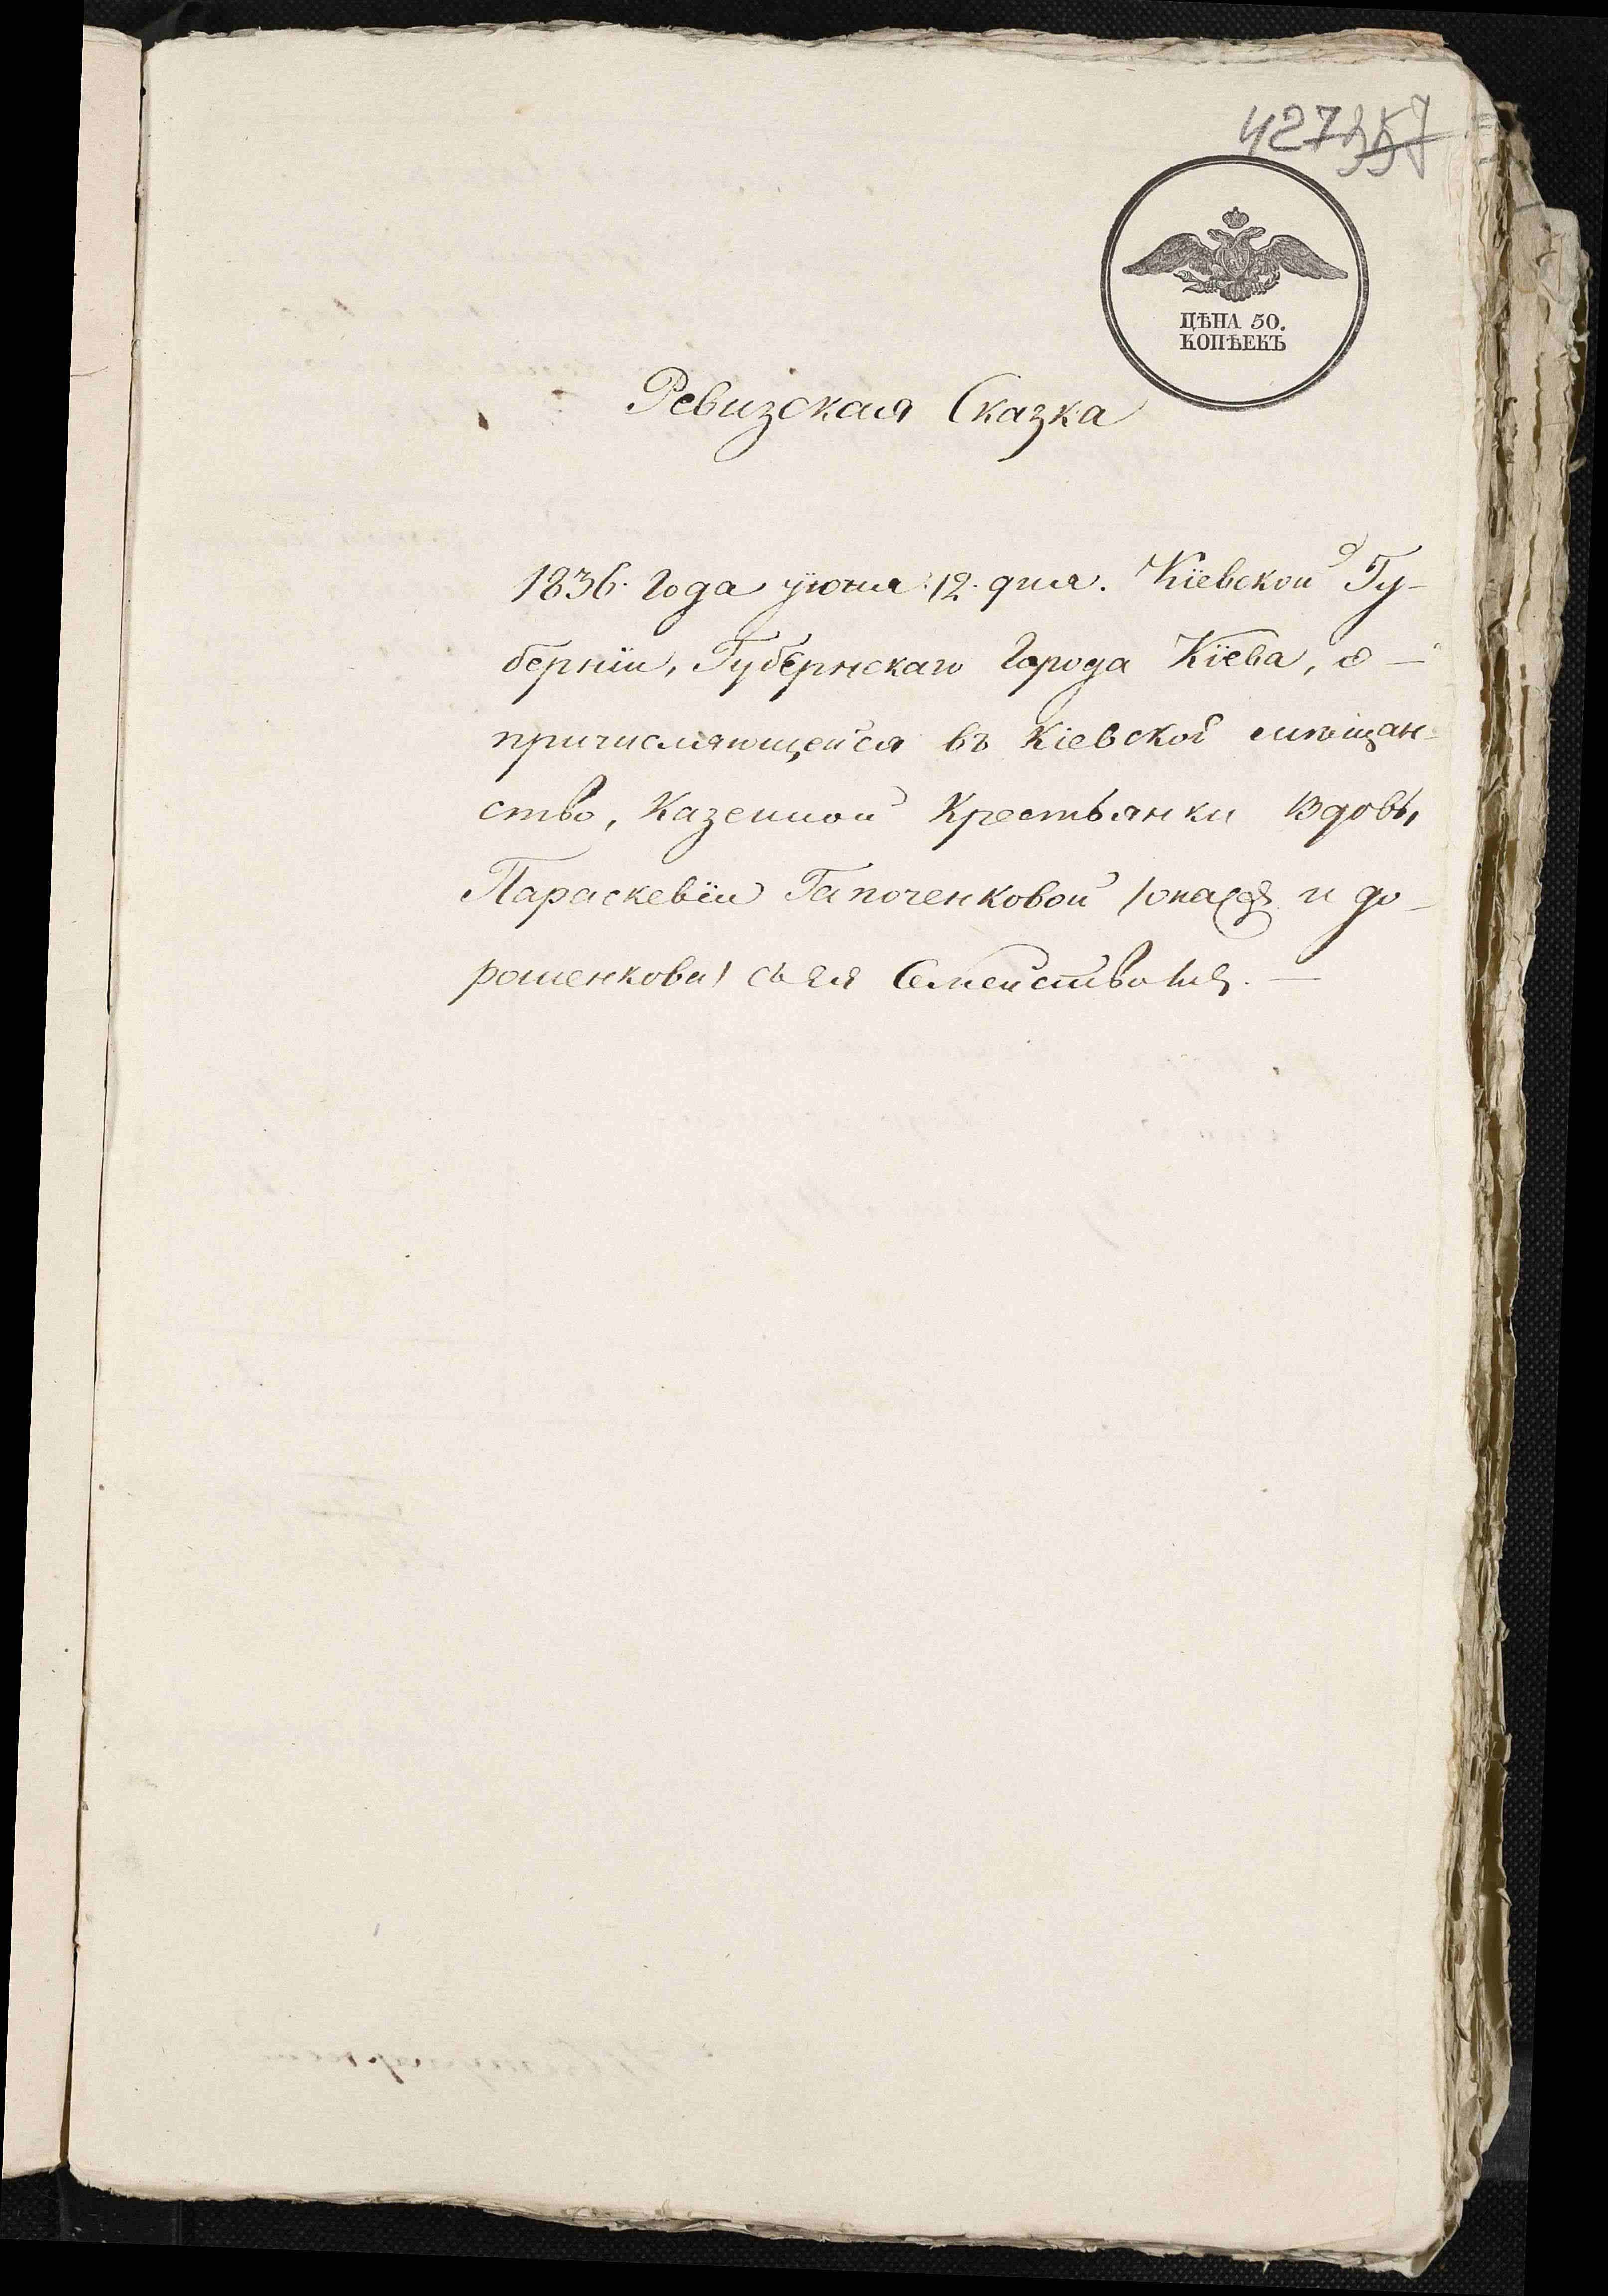 427 357
ЦѢНА 50.
КОПѢЕКЪ
Ревизская Сказка
1836. Года Іюня 12. дня. Кіевской Гу-
берніи, Губернскаго Города Кіева, о —
причисляющейся въ Кіевское мѣщан-
ство, Казенной Крестьянки Вдовы
Параскевіи Гапоченковой /она и до-
рошенкова/ съ ея Семействомъ. —